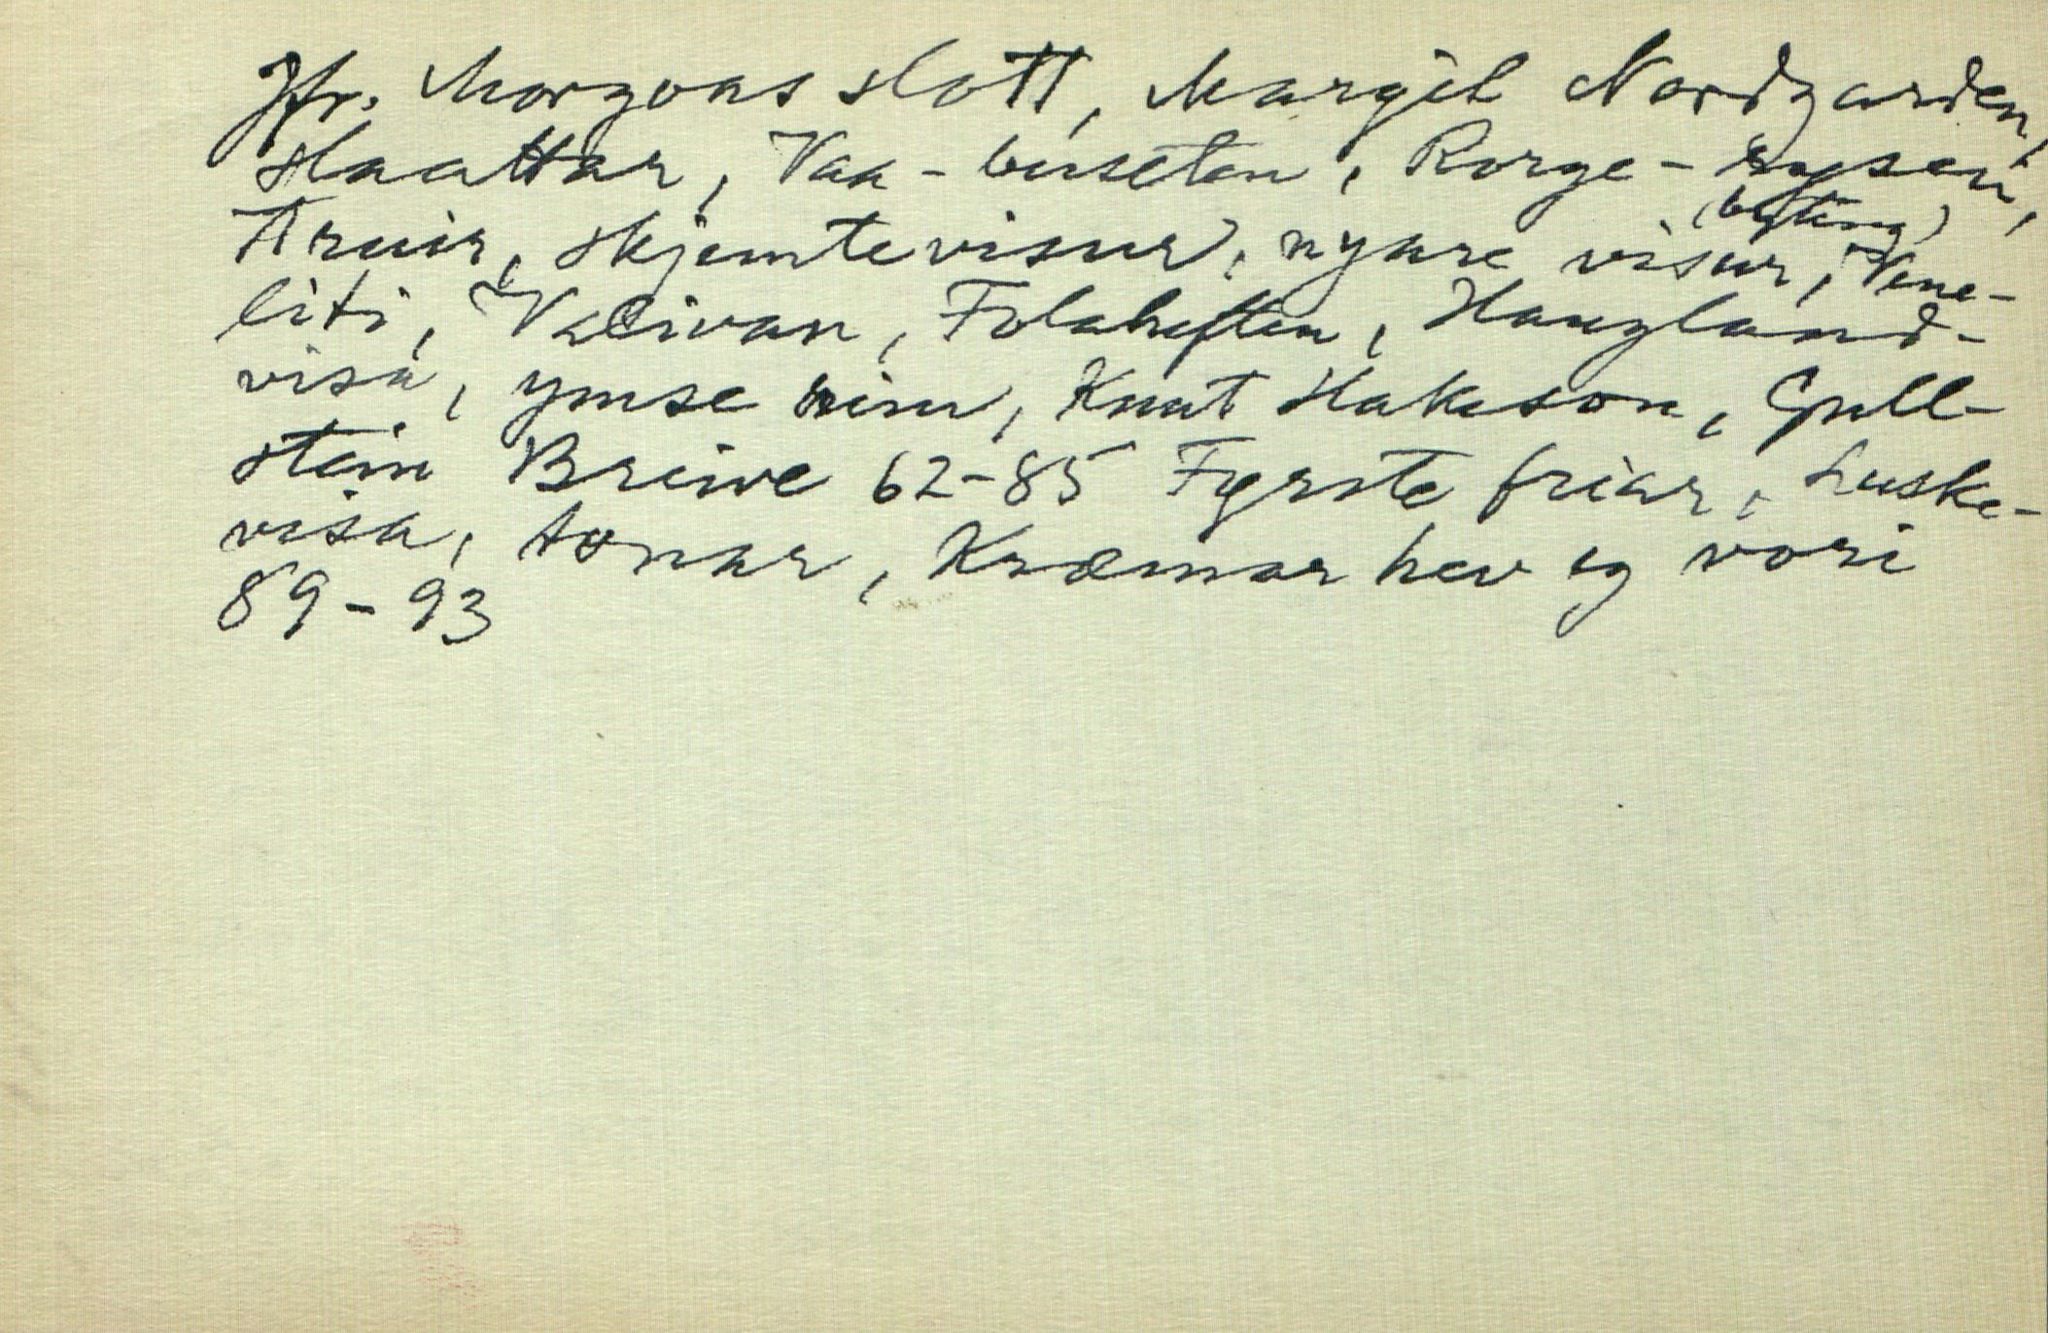 Jfr. Morgons slott, Margit Nordgarden,
slaattar, Vaa-buseten, Rorge-rysen,
Truir, skjemtevisur, nyare visur, Vene-
liti, Valivan, Folahesten, Haugland-
visa, ymse rim, Knut Hakeson, Gull-
stein Breive 62-85 Fyrste friar, Luske-
visa, tonar, Kræmar hev eg vori
89-93